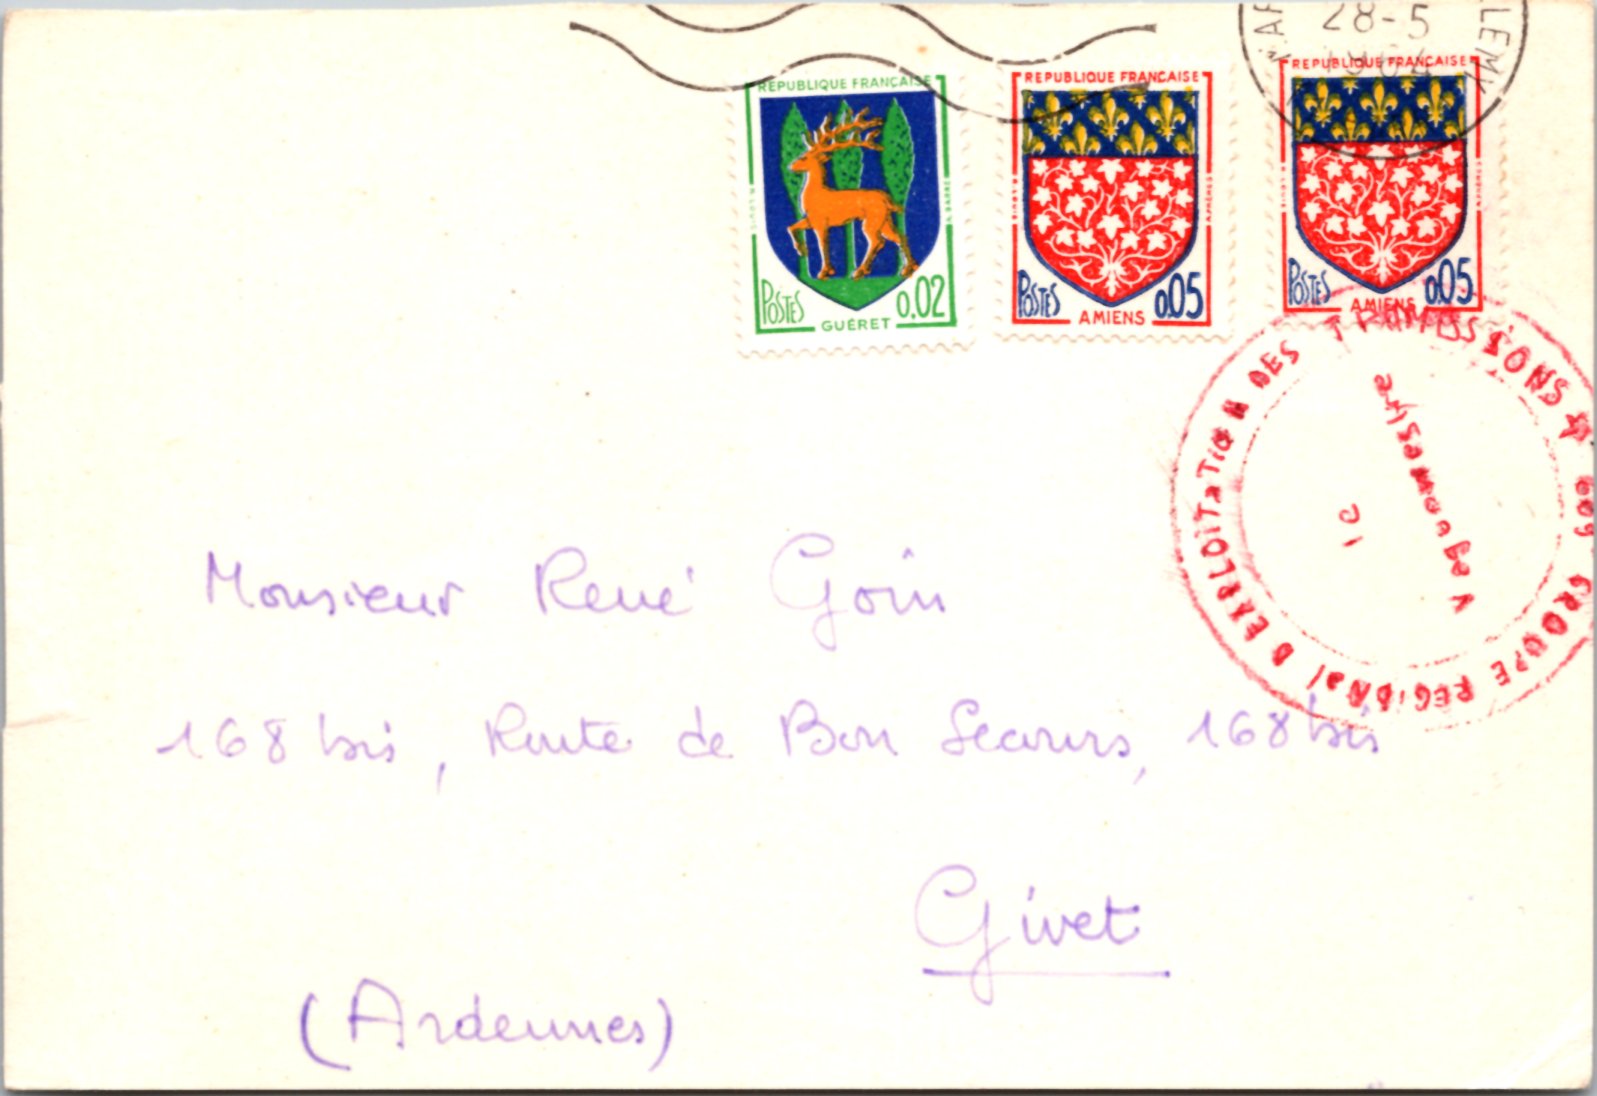 28-5
RÉPUBLIQUE FRANÇAISE
POSTES 0,02
GUÉRET
RÉPUBLIQUE FRANÇAISE
POSTES 0,05
AMIENS
RÉPUBLIQUE FRANÇAISE
POSTES 0,05
AMIENS
GROUPE REGIONAL D EXPLOITATION DES TRANSMISSIONS
Vaguemestre
Monsieur René Goin
168 bis, Route de Bon Secours, 168 bis
Givet
(Ardennes)